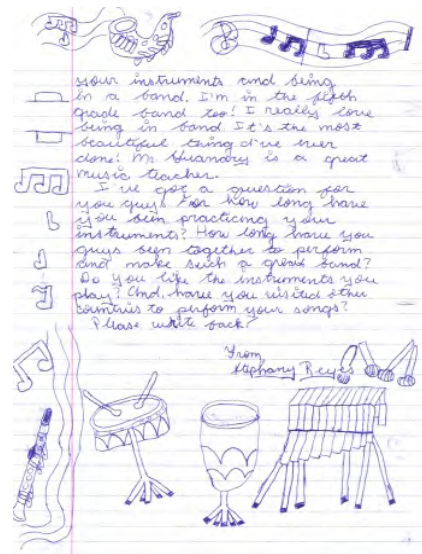 your instruments and being
in a band. I'm in the fifth
grade band too! I really love
being in band. It's the most
beautiful thing I've ever
done! Mr. Guandry is a great
music teacher.
I've got a question for
you guys. For how long have
you been practicing your
instruments? How long have you
guys been together to perform
and make such a great band?
Do you like the instruments you
play? And, have you visited other
countries to perform your songs?
Please write back!
From
Stephany Reyes